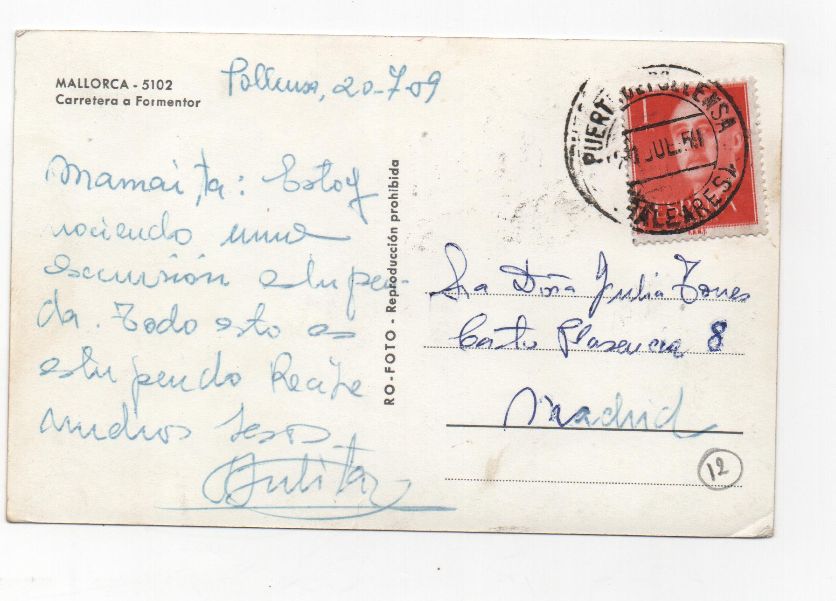 MALLORCA - 5102
Carretera a Formentor
Pollensa, 20-7-59
Mamaíta: Estoy
haciendo una
excursión estupen-
da. Todo esto es
estupendo Recibe
muchos besos
Julita
RO-FOTO - Reproducción prohibida
PUERTO DE POLLENSA
JUL. 59
(BALEARES)
Sra Doña Julia Torres
Plasencia 8
Madrid
12